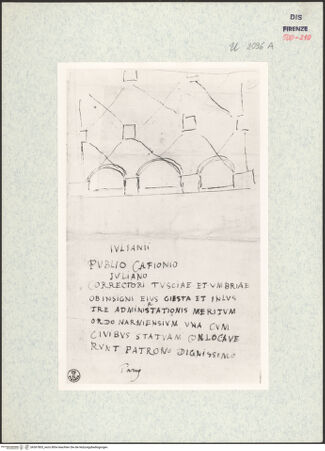 DIS
FIRENZE
500-210
U 2096 A
IVLIANII
PVBLIO CAFIONIO
IVLIANO
CORRECTORI TVSCIAE ET VMBRIAE
OB INSIGNI EIVS GIESTA ET INLVS
TRE ADMINISTRATIONIS MERITVM
ORDO NARNIENSIVM VNA CVM
CIVIBVS STATVAM CONLOCAVE
RVNT PATRONO DIGNISSIMO